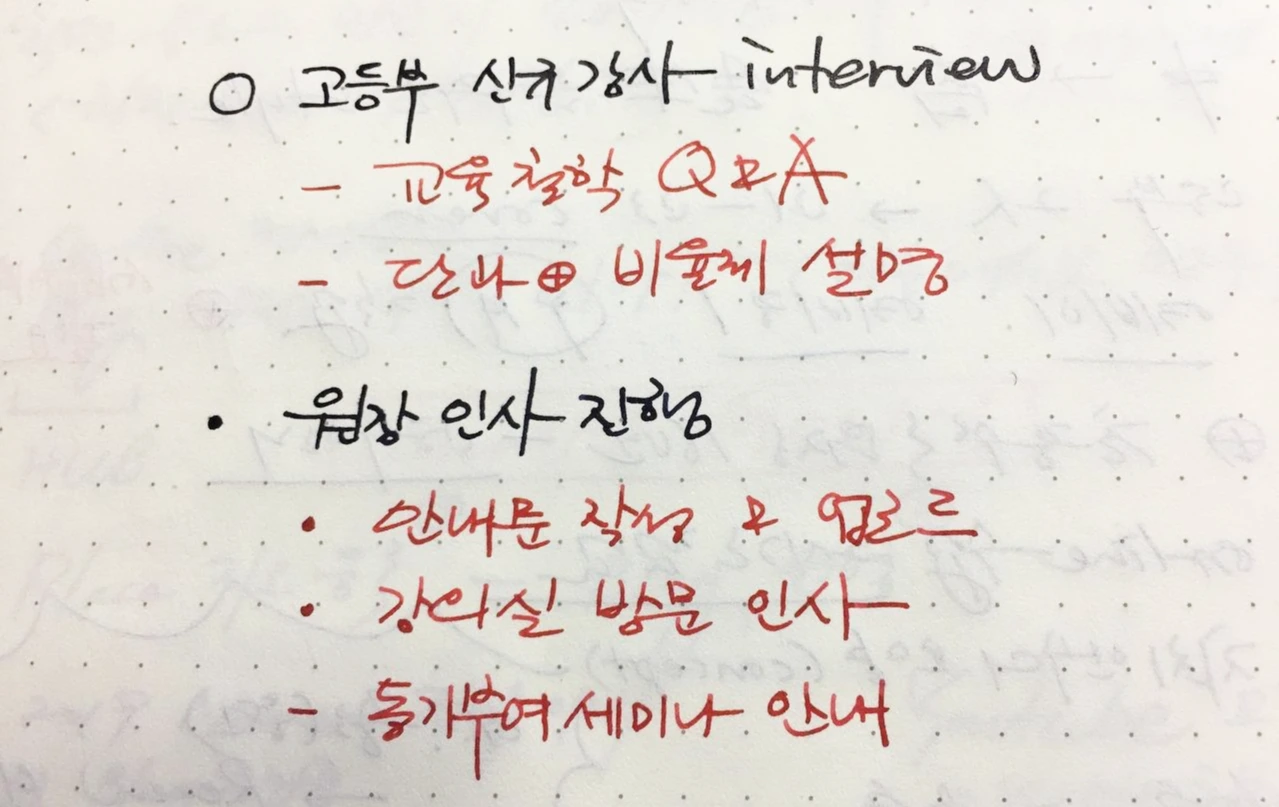 ○ 고등부 신규 강사 interview
- 교육철학 Q&A
- 단과 ⊕ 비율제 설명
• 원장 인사 진행
• 안내문 작성 & 업로드
• 강의실 방문 인사
- 동기부여 세미나 안내